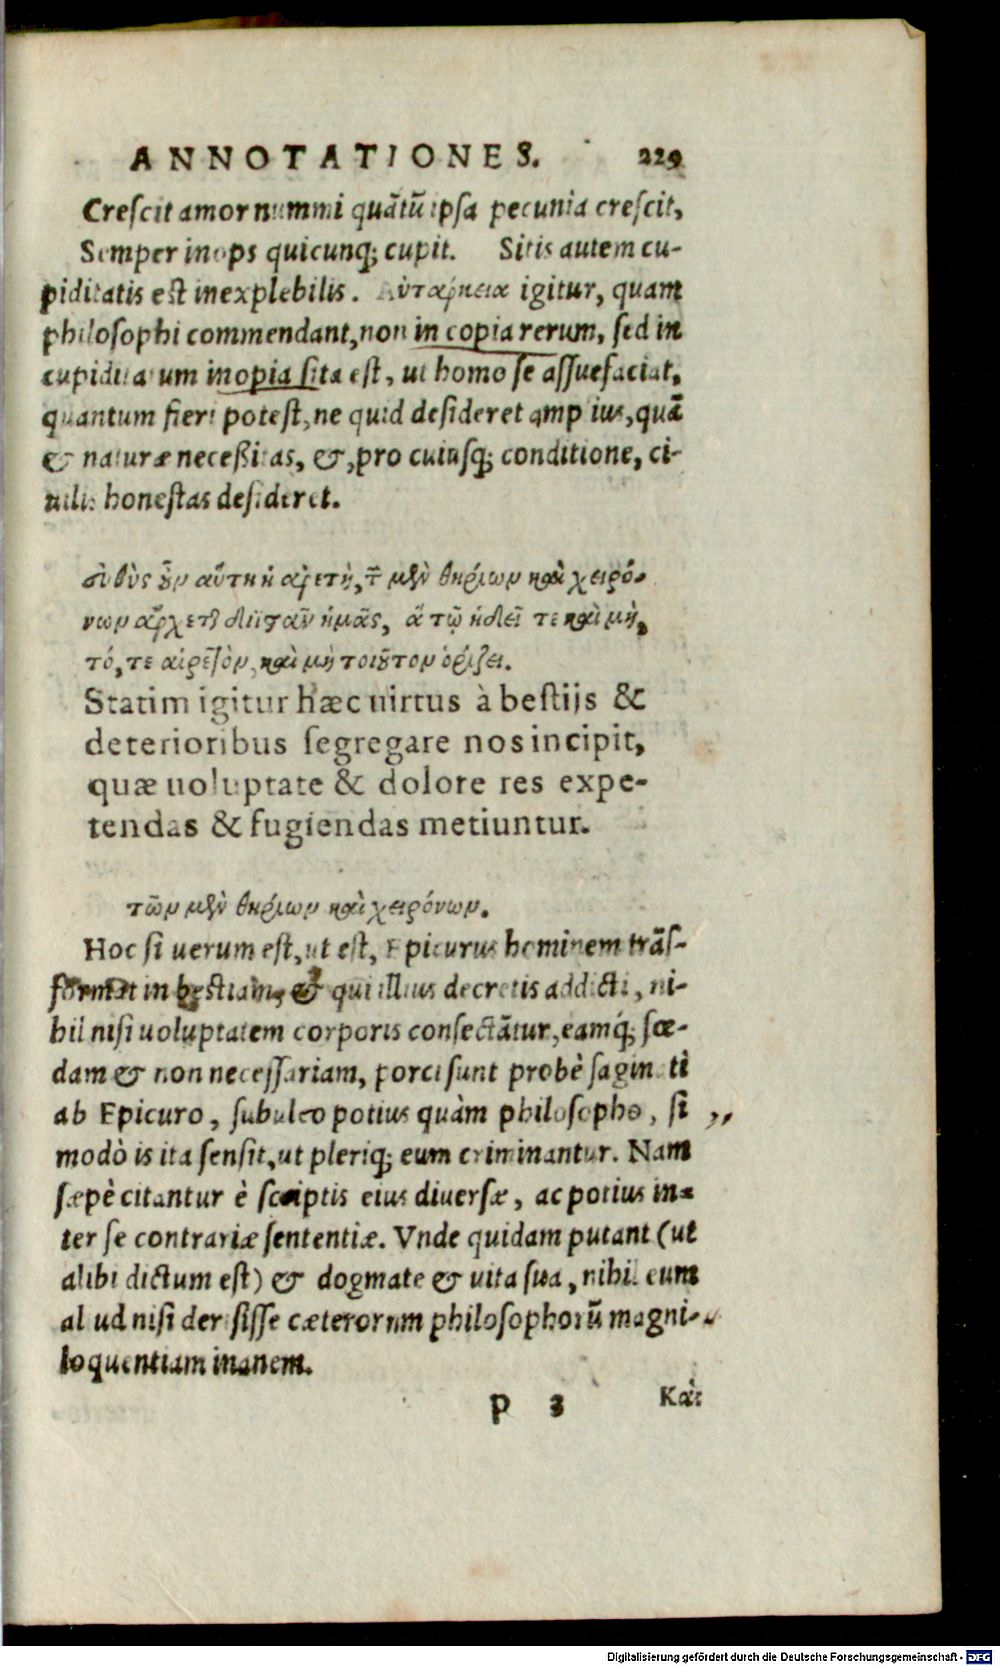 ANNOTATIONES. 229
Crescit amor nummi quātū ipsa pecunia crescit,
Semper inops quicunq; cupit. Sitis autem cu-
piditatis est inexplebilis. Αὐταρκεια igitur, quam
philosophi commendant, non in copia rerum, sed in
cupiditatum inopia sita est, ut homo se assuefaciat,
quantum fieri potest, ne quid desideret amplius, quā
& naturæ neceßitas, &, pro cuiusq; conditione, ci-
uilis honestas desideret.
εὐθὺς οὖν αὕτη ἡ ἀρετὴ, τῶν μὲν θηρίων καὶ χειρό-
νων ἄρχεται διϊστᾶν ἡμᾶς, ἃ τῷ ἡδεῖ τε καὶ μὴ,
τό, τε αἱρετὸν, καὶ μὴ τοιοῦτον ὁρίζει.
Statim igitur hæc uirtus à bestijs &
deterioribus segregare nos incipit,
quæ uoluptate & dolore res expe-
tendas & fugiendas metiuntur.
τῶν μὲν θηρίων καὶ χειρόνων.
Hoc si uerum est, ut est, Epicurus hominem trās-
format in bestiam, & qui illius decretis addicti, ni-
hil nisi uoluptatem corporis consectātur, eamq́; fœ-
dam & non necessariam, porci sunt probè saginati
ab Epicuro, subulco potius quàm philosopho, si ,,
modò is ita sensit, ut pleriq; eum criminantur. Nam
sæpè citantur è scriptis eius diuersæ, ac potius in-
ter se contrariæ sententiæ. Vnde quidam putant (ut
alibi dictum est) & dogmate & uita sua, nihil eum
aliud nisi derisisse cæterorum philosophorū magni-
loquentiam inanem.
p 3 Καὶ
Digitalisierung gefördert durch die Deutsche Forschungsgemeinschaft - DFG